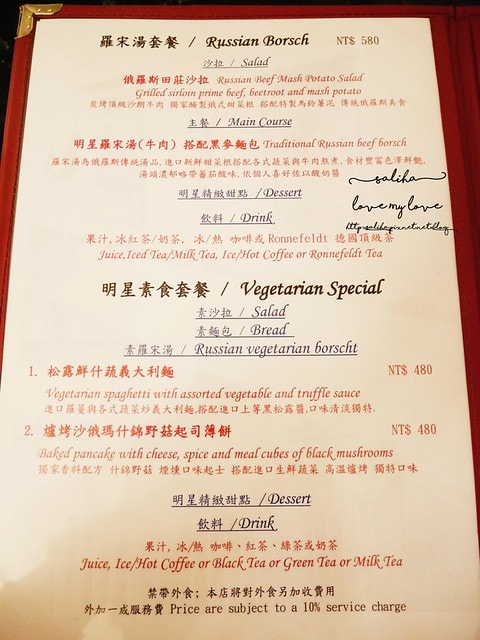 羅宋湯套餐 / Russian Borsch NT$ 580
沙拉 / Salad
俄羅斯田莊沙拉 Russian Beef Mash Potato Salad
Grilled sirloin prime beef, beetroot and mash potato
炭烤頂級沙朗牛肉 獨家醃製俄式甜菜根 搭配特製馬鈴薯泥 傳統俄羅斯美食
主餐 / Main Course
明星羅宋湯(牛肉) 搭配黑麥麵包 Traditional Russian beef borsch
羅宋湯為俄羅斯傳統湯品,進口新鮮甜菜根搭配各式蔬菜與牛肉熬煮,食材豐富色澤鮮艷,
湯頭濃郁略帶蕃茄酸味,依個人喜好佐以酸奶醬
saliha
明星精緻甜點 /Dessert
love my love
飲料 / Drink
http:saliha.pixnet.net/blog
果汁,冰紅茶/奶茶, 冰/熱 咖啡或 Ronnefeldt 德國頂級茶
Juice,Iced Tea/Milk Tea, Ice/Hot Coffee or Ronnefeldt Tea
明星素食套餐 / Vegetarian Special
素沙拉 / Salad
素麵包 / Bread
素羅宋湯 / Russian vegetarian borscht
1. 松露鮮什蔬義大利麵 NT$ 480
Vegetarian spaghetti with assorted vegetable and truffle sauce
進口蘿蔓與各式蔬菜炒義大利麵,搭配進口上等黑松露醬,口味清淡獨特.
2. 爐烤沙俄瑪什錦野菇起司薄餅 NT$ 480
Baked pancake with cheese, spice and meal cubes of black mushrooms
獨家香料配方 什錦野菇 煙燻口味起士 搭配進口生鮮蔬菜 高溫爐烤 獨特口味
明星精緻甜點 /Dessert
飲料 /Drink
果汁, 冰/熱 咖啡、紅茶、綠茶或奶茶
Juice, Ice/Hot Coffee or Black Tea or Green Tea or Milk Tea
禁帶外食; 本店將對外食另加收費用
外加一成服務費 Price are subject to a 10% service charge